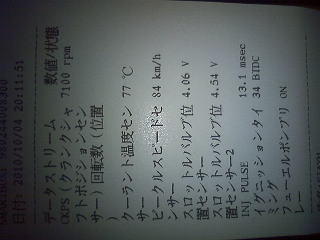 日付: 2010/10/04 20:11:51
データストリーム 数値/状態
CKPS (クランクシャ 7100 rpm
フトポジションセン
サー)回転数 (位置
)
クーラント温度セン 77 ℃
サー
ビークルスピードセ 84 km/h
ンサー
スロットルバルブ位 4.06 V
置センサー
スロットルバルブ位 4.54 V
置センサー2
INJ PULSE 13.1 msec
イグニッションタイ 34 BTDC
ミング
フューエルポンプリ ON
レー